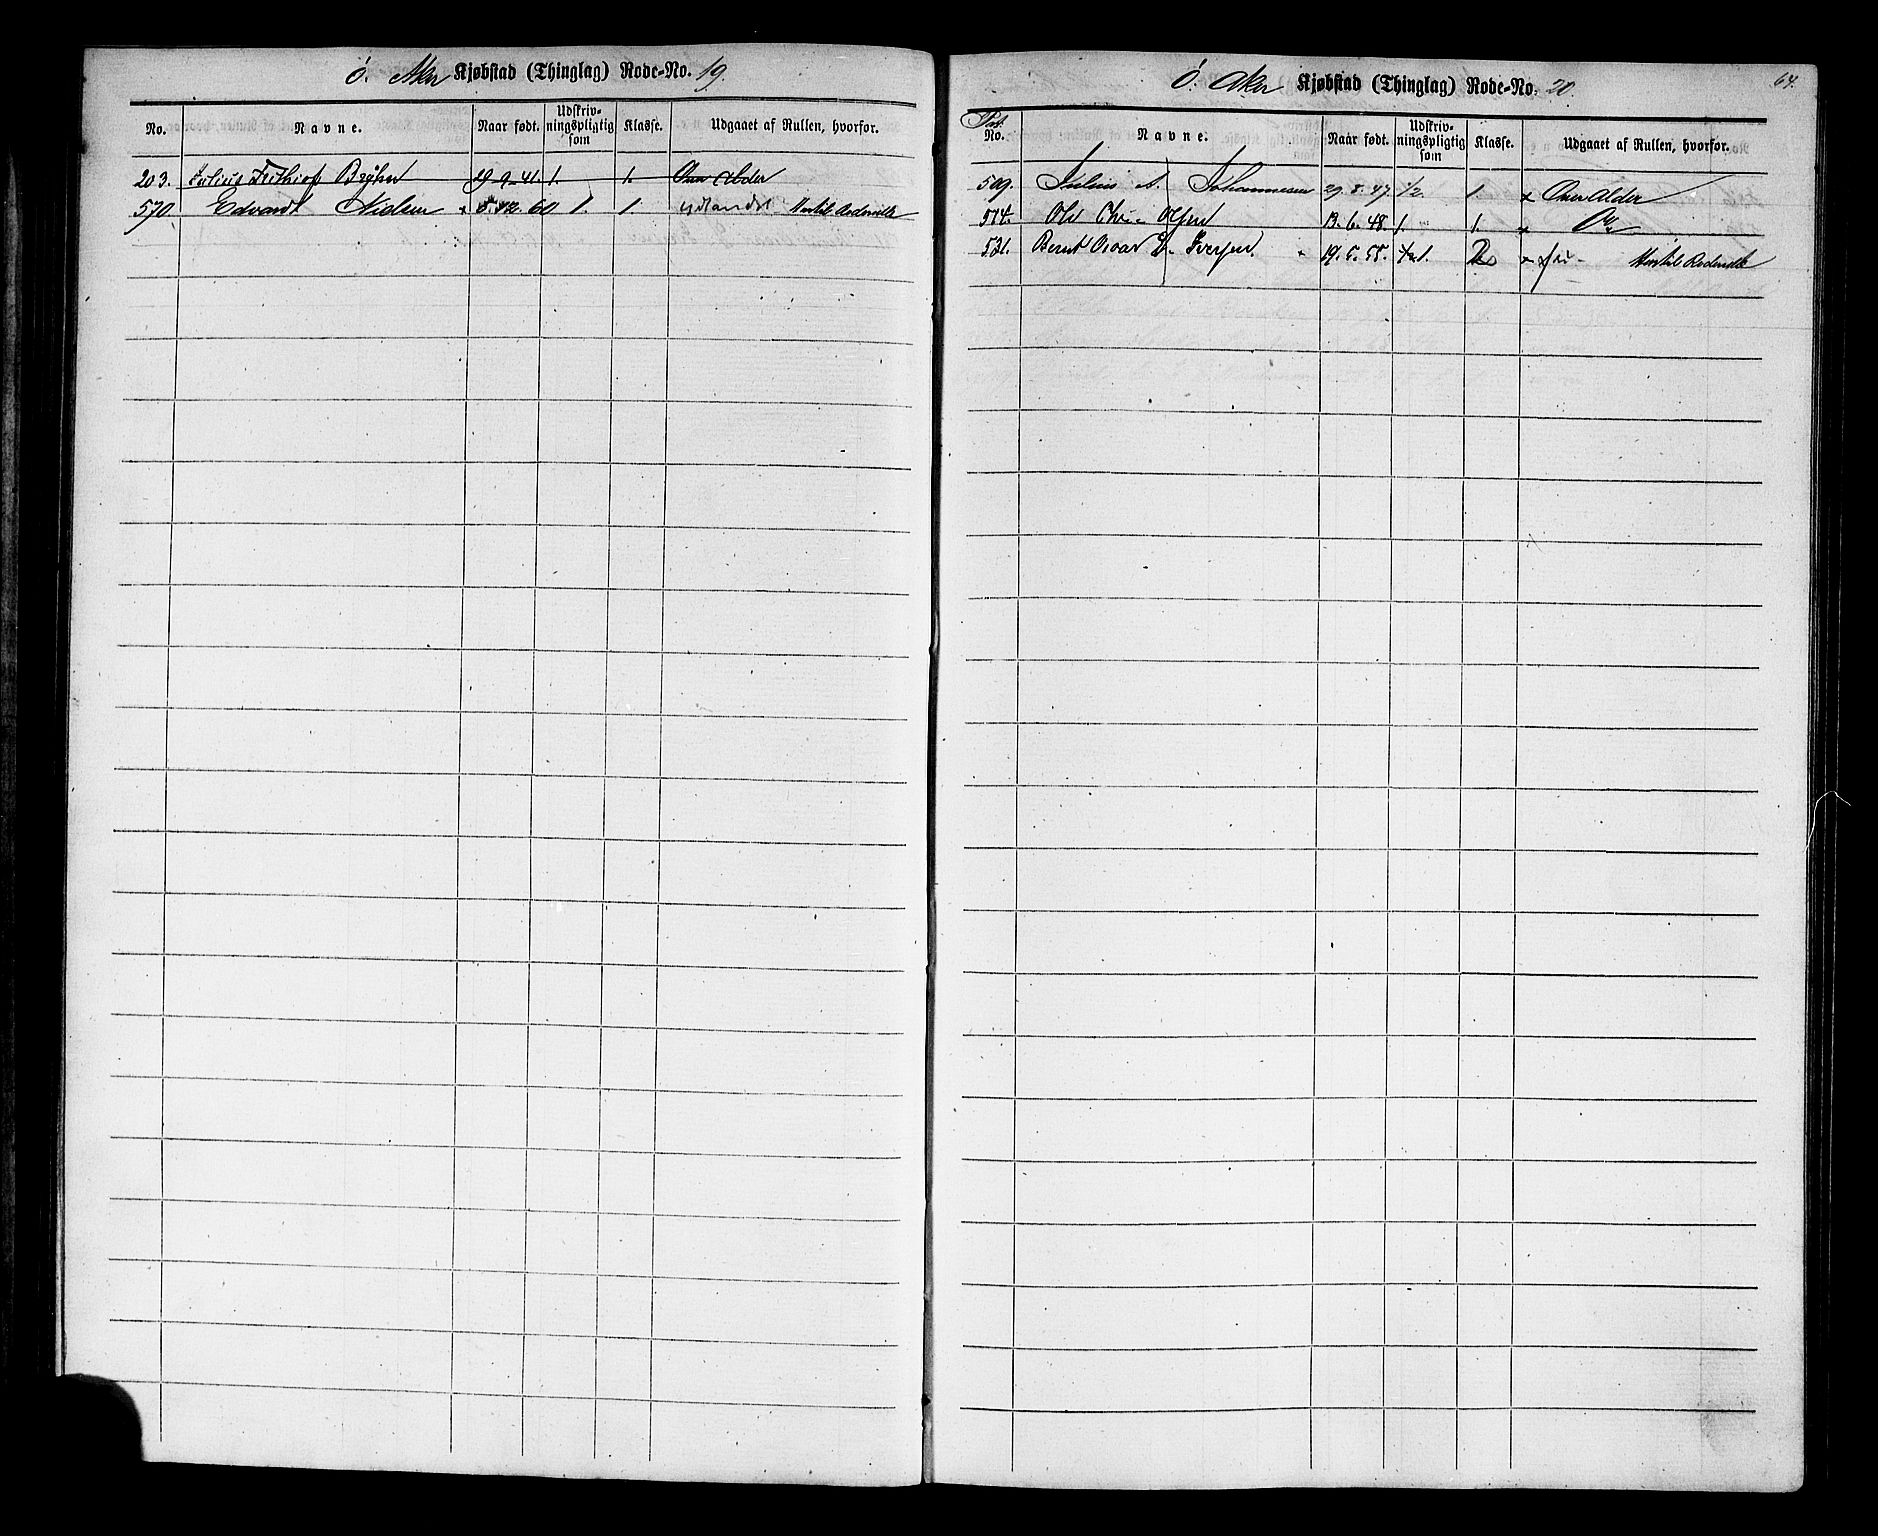 Ö. Aker Kjøbstad (Thinglag) Rode-No. 19.
No. Navne. Naar født. Udskrivningspligtig som Klasse. Udgaaet af Rullen, hvorfor.
203. Julius Frithiof 29-9-41. 1. 1. Over Alder
570. Edvardt Nielsen 60 1. 1. udlandst.
64.
Ö. Aker Kjøbstad (Thinglag) Rode-No. 20.
Pat. No. Navne. Naar født. Udskrivningspligtig som Klasse. Udgaaet af Rullen, hvorfor.
509. Julius A. Johannesen 29.8.47. 1/2. 1. x Over Alder
514. Ole Chr. Olsen 13.6.48. 1. 1. x Do
531. Bernt Oscar L. Iversen. 19.5.55.